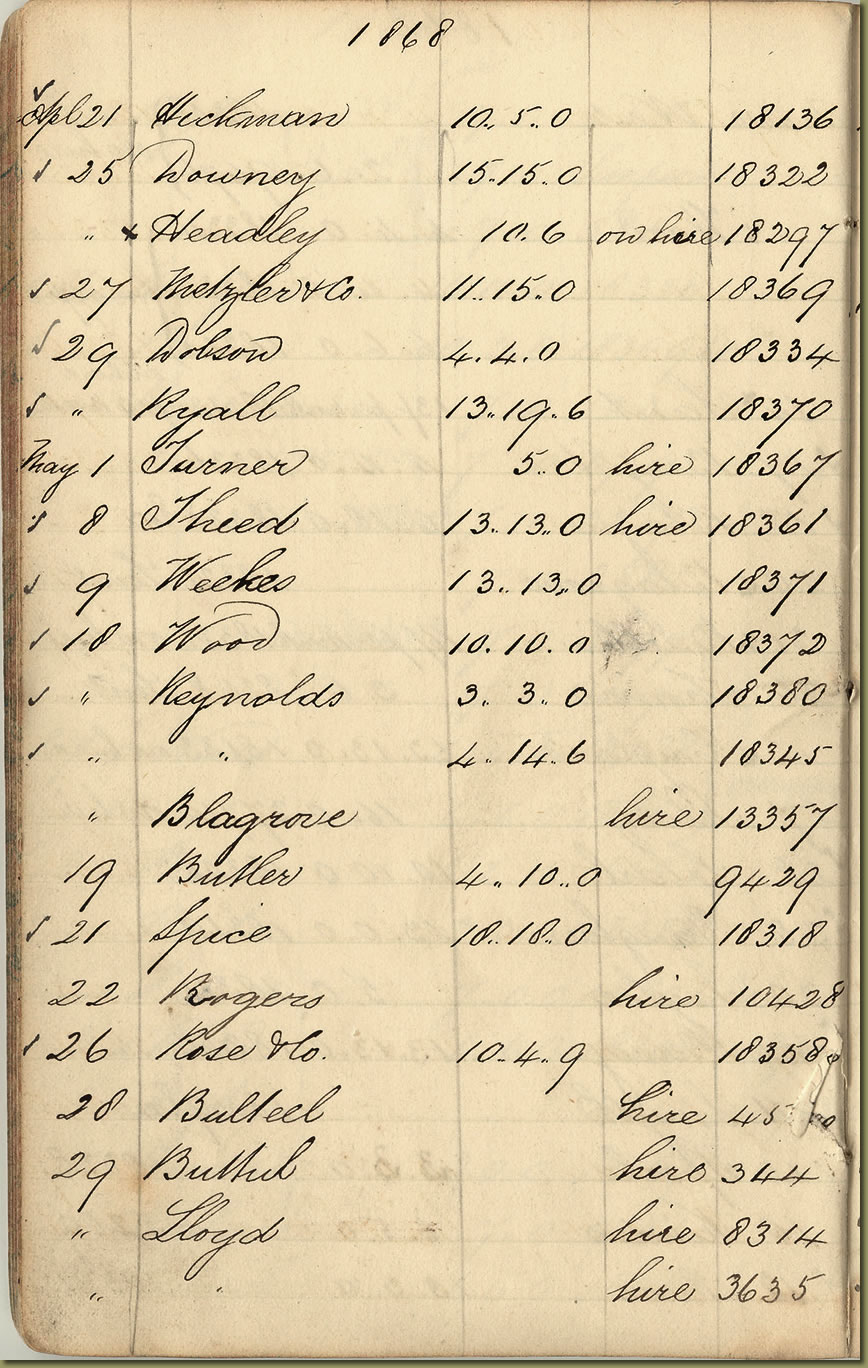 1868
Apl 21 Hickman 10.. 5.. 0 18136
✓ 25 Downey 15.15.. 0 18322
" x Headley 10.6 on hire 18297
✓ 27 Metzler & Co. 11..15..0 18369
✓ 29 Dobson 4.4.0 18334
✓ " Ryall 13..19..6 18370
May 1 Turner 5..0 hire 18367
✓ 8 Theed 13..13..0 hire 18361
✓ 9 Weekes 13..13..0 18371
✓ 18 Wood 10.10.0 18372
✓ " Reynolds 3.. 3.. 0 18380
✓ " " 4..14..6 18345
" Blagrove hire 13357
19 Butler 4..10..0 9429
✓ 21 Spice 18..18..0 18318
22 Rogers hire 10428
✓ 26 Rose & Co. 10..4..9 18358
28 Bulteel hire
29 Buttul hire 344
" Lloyd hire 8314
" " hire 3635